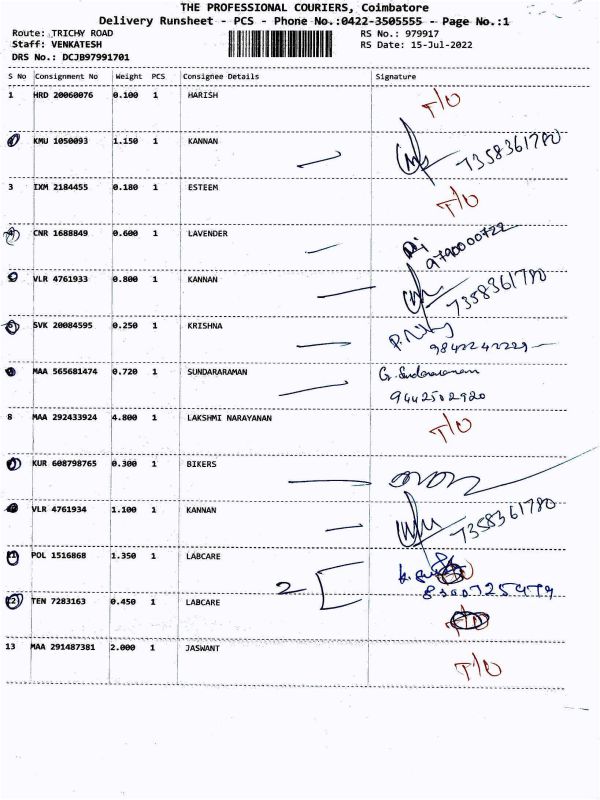 THE PROFESSIONAL COURIERS, Coimbatore
Delivery Runsheet - PCS - Phone No.:0422-3505555 - Page No.:1
Route: TRICHY ROAD RS No.: 979917
Staff: VENKATESH RS Date: 15-Jul-2022
DRS No.: DCJB97991701
S No Consignment No Weight PCS Consignee Details Signature
1 HRD 20060076 0.100 1 HARISH T/O
2 KMU 1050093 1.150 1 KANNAN 7358361780
3 IXM 2184455 0.180 1 ESTEEM T/O
4 CNR 1688849 0.600 1 LAVENDER 9790000722
5 VLR 4761933 0.800 1 KANNAN 7358361780
6 SVK 20084595 0.250 1 KRISHNA
9842242229
MAA 565681474 0.720 1 SUNDARARAMAN G. Sundararaman
9442502920
8 MAA 292433924 4.800 1 LAKSHMI NARAYANAN T/O
KUR 608798765 0.300 1 BIKERS
VLR 4761934 1.100 1 KANNAN 7358361780
11 POL 1516868 1.350 1 LABCARE
2
12 TEN 7283163 0.450 1 LABCARE
13 MAA 291487381 2.000 1 JASWANT T/O